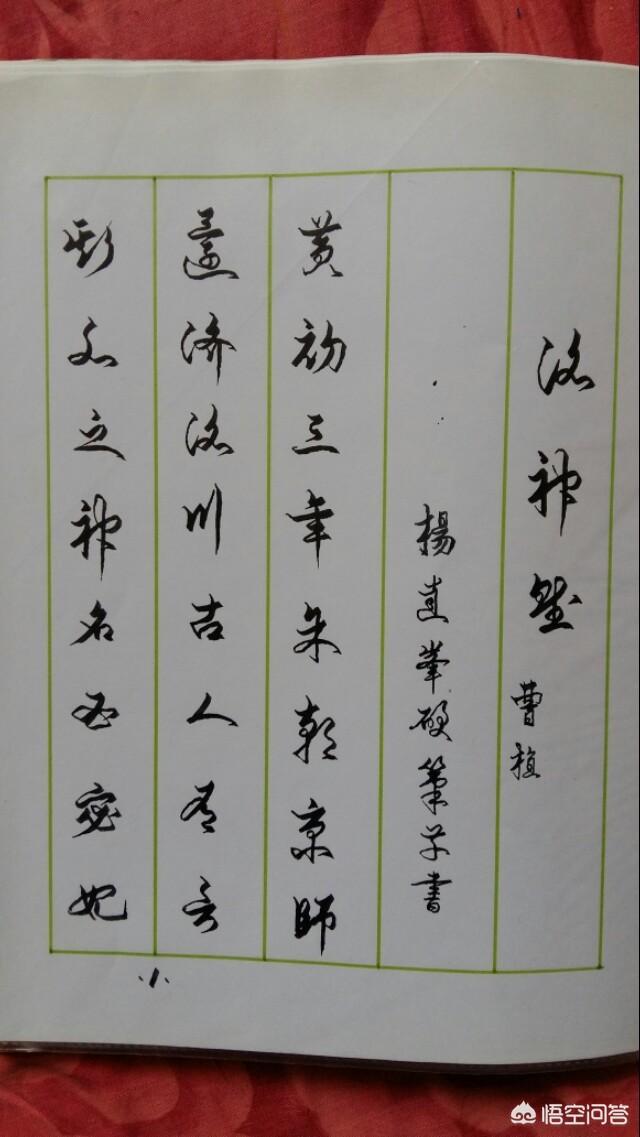 洛神赋 曹植
楊直峯硬筆草書
黄初三年余朝京師
還济洛川古人有言
斯水之神名曰宓妃
·1·
悟空问答